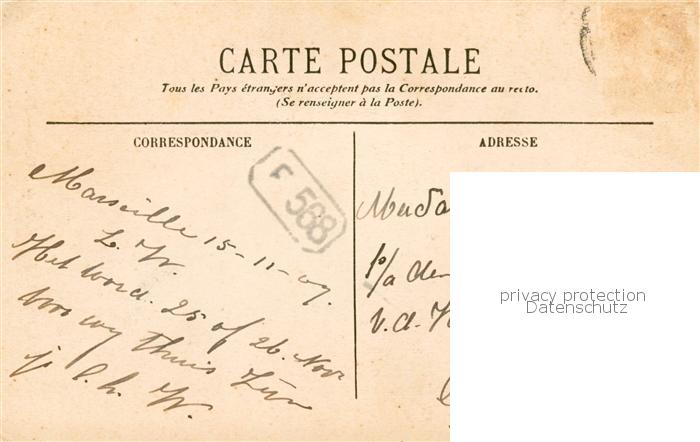 CARTE POSTALE
Tous les Pays étrangers n'acceptent pas la Correspondance au recto.
(Se renseigner à la Poste).
CORRESPONDANCE
ADRESSE
F 568
Marseille 15-11-07.
L. W.
Het word. 25 of 26 Nov.
voor wy thuis zyn
W.
p/a den
v.d.
privacy protection
Datenschutz